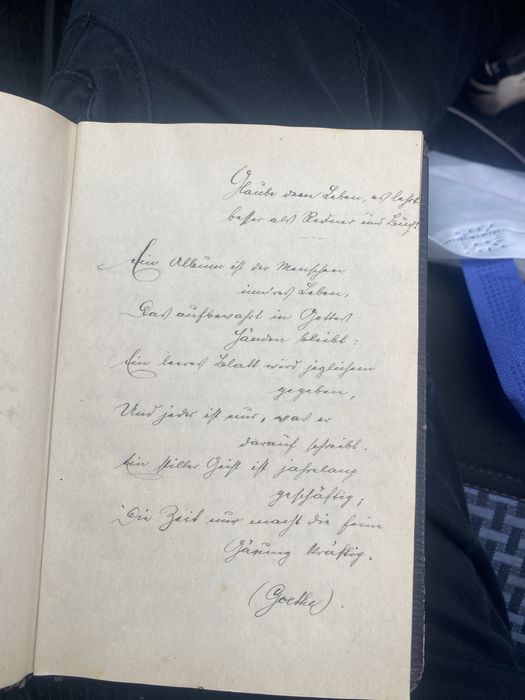 Glaube dem Leben, es lehrt
besser als Redner und Buch!
Ein Album ist der Menschen
inneres Leben,
Das aufbewahrt in Gottes
Händen bleibt:
Ein leeres Blatt wird jeglichem
gegeben,
Und jeder ist nur, was er
darauf schreibt.
Ein stiller Geist ist jahrelang
geschäftig;
Die Zeit nur macht die feine
Gärung kräftig.
(Goethe).